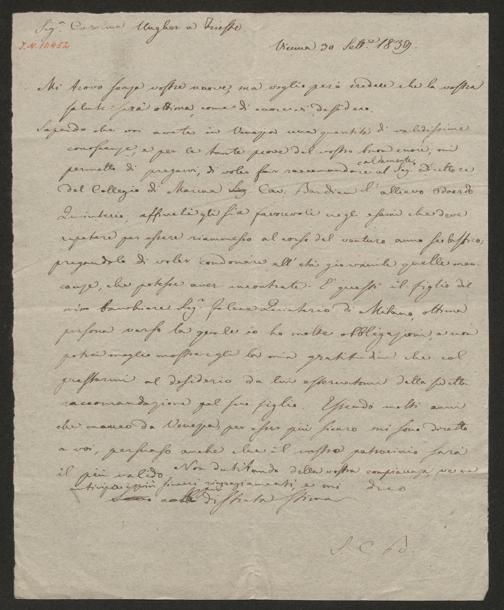 Sig.ª Carolina Ungher a Trieste
I.N. 10452
Vienna 30 Sett.e 1839
Mi trovo senza vostre nuove, ma voglio però credere che la vostra
salute sarà ottima, come di cuore vi desidero.
Sapendo che voi avete in Venezia una quantità di validissime
conoscenze, e per le tante prove del vostro buon cuore, mi
permetto di pregarvi, di voler far raccomandare caldamente al Sig. Direttore
del Collegio di Marina Sig. Cav. l'allievo Odoardo
Quinterio, affinché gli sia favorevole negli esami che deve
ripetere per essere riammesso al corso del venturo anno scolastico,
pregandolo di voler condonare all'età giovanile quelle man-
canze, che potesse aver incontrate. È questi il figlio del
mio banchiere Sig.r Felice Quinterio di Milano, ottima
persona verso la quale io ho molte obbligazioni, e non
potrei meglio mostrargli la mia gratitudine che col
prestarmi al desiderio da lui esternatomi della sudetta
raccomandazione pel suo figlio. Essendo molti anni
che manco da Venezia, per esser più sicuro mi sono diretto
a voi, persuaso anche che il vostro patrocinio sarà
il più valido. Non dubitando della vostra compiacenza, ve ne
anticipo i più sinceri ringraziamenti e mi dico
con distinta stima